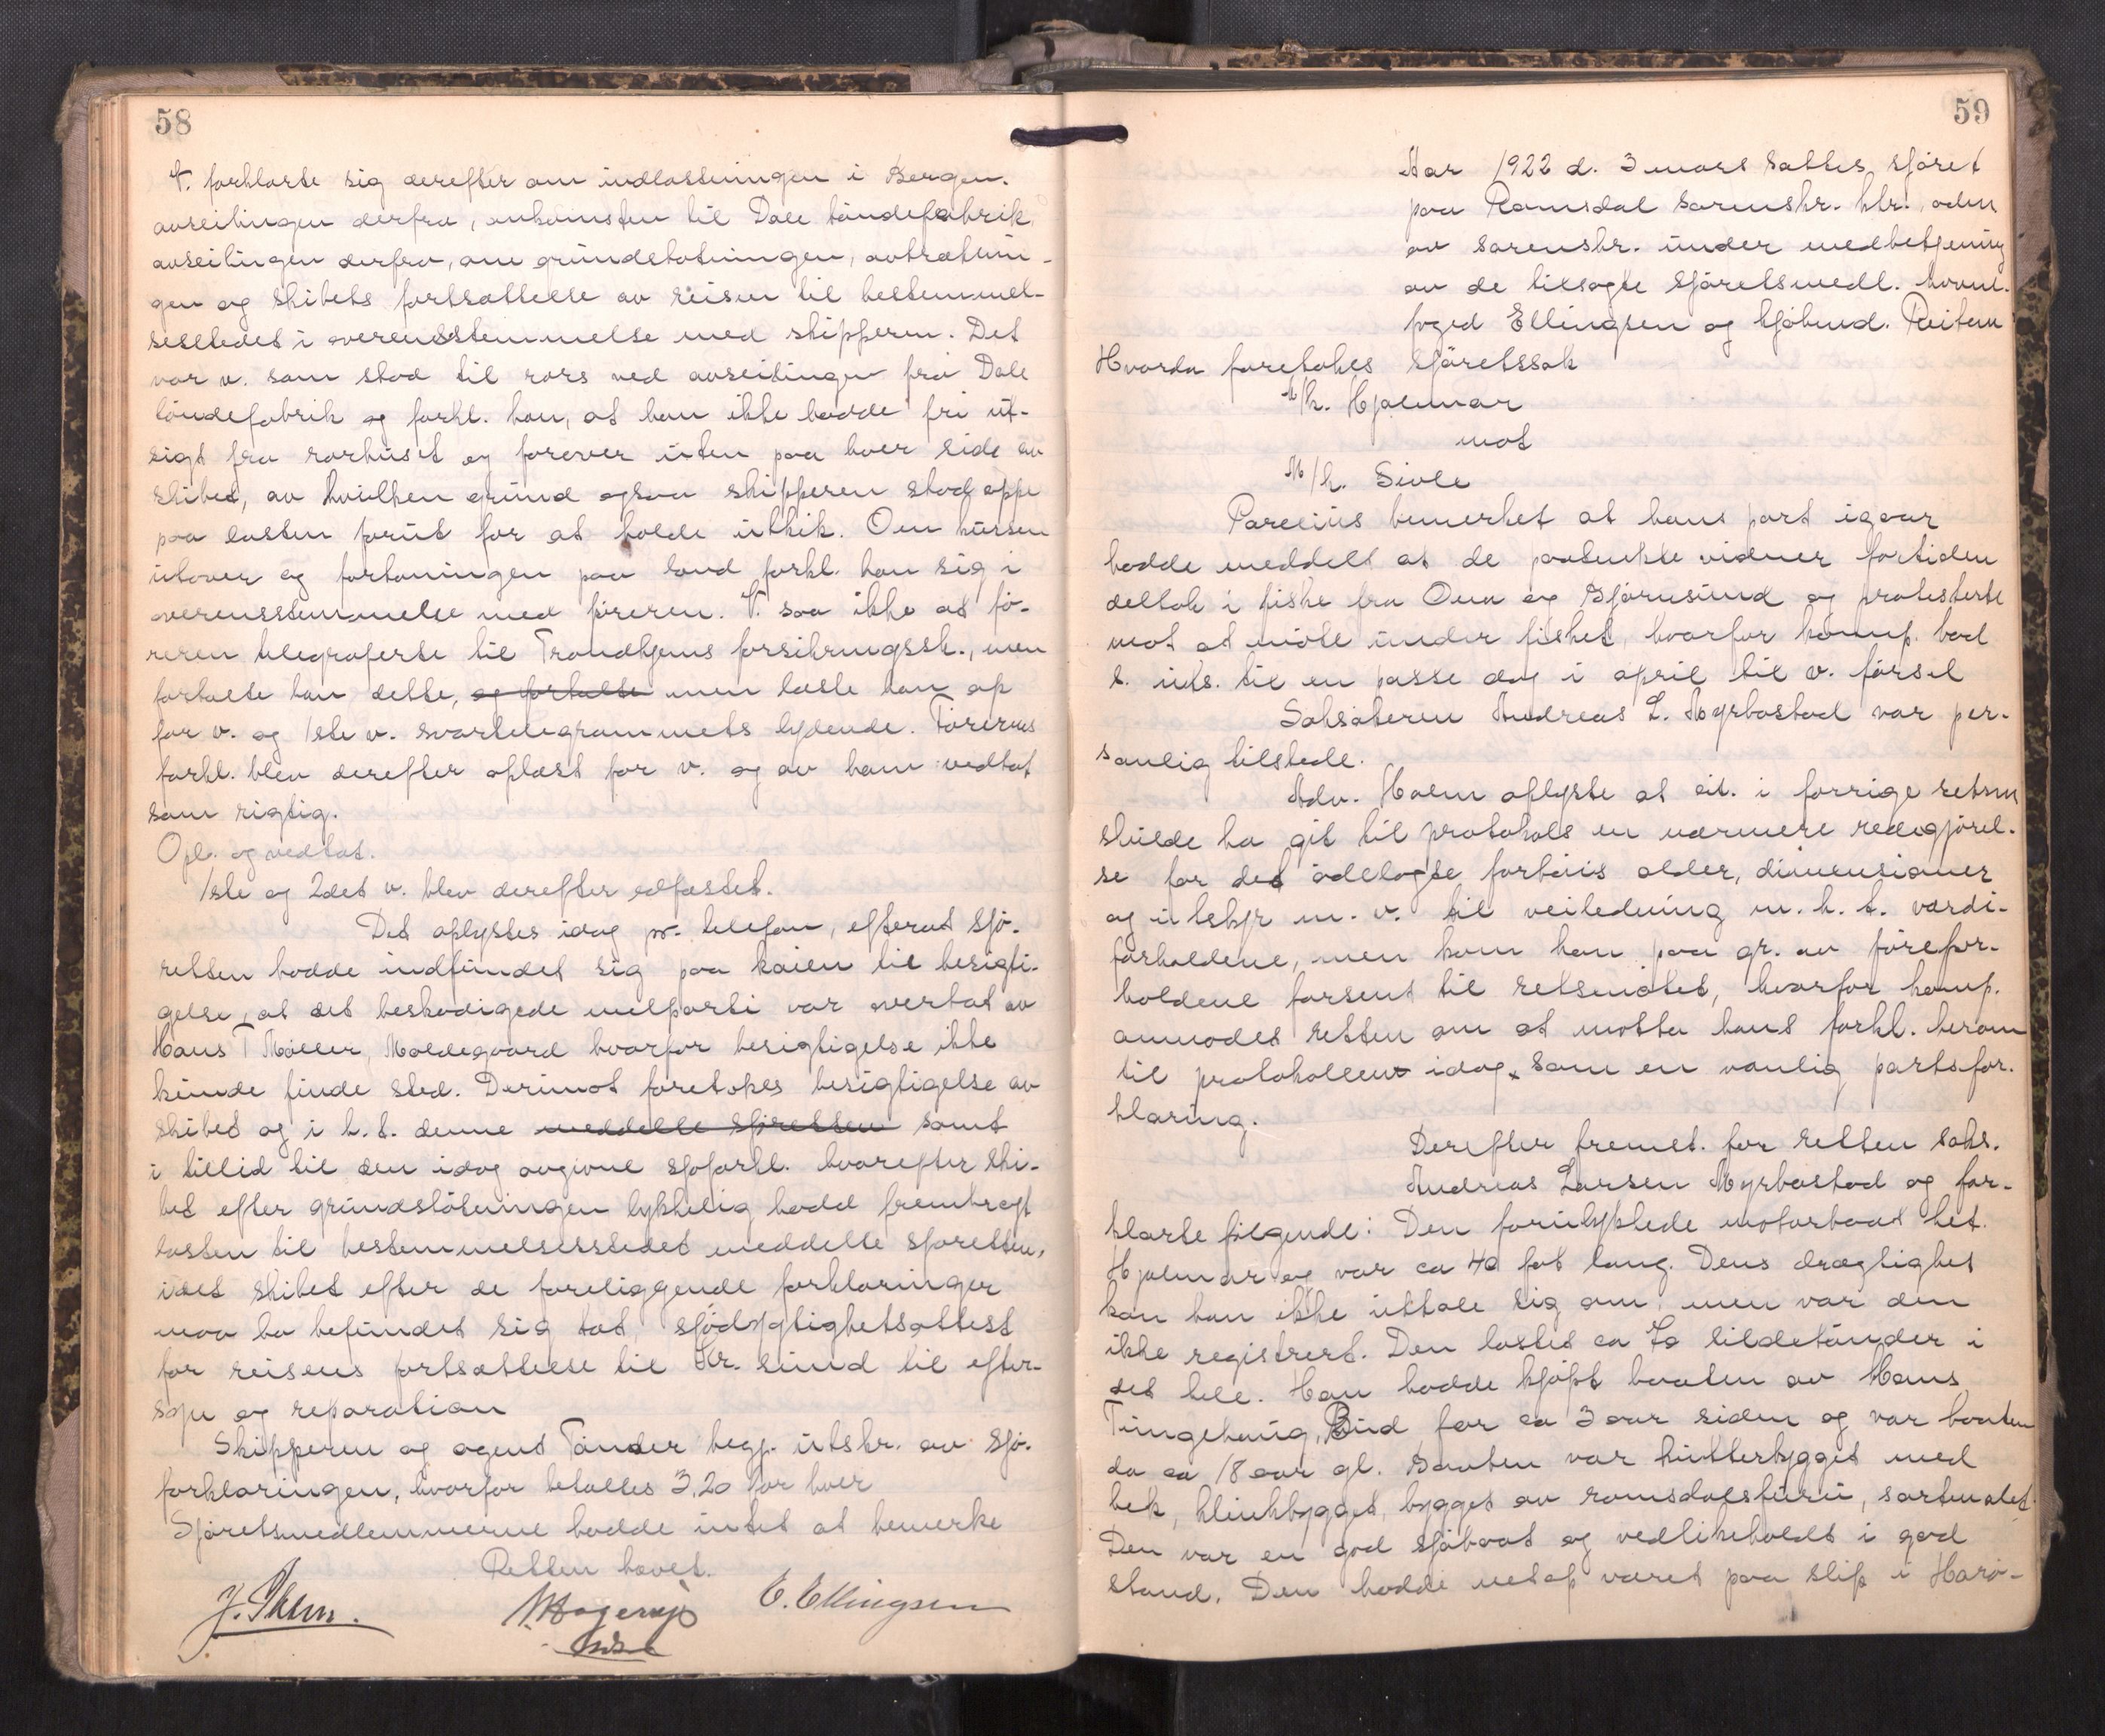 58
V. forklarte sig derefter om indlastningen i Bergen.
avseilingen derfra, ankomsten til Dale tøndefabrik,
avseilingen derfra, om grundstøtningen, avtrækin-
gen og skibets fortsættelse av reisen til bestemmel-
sesstedet i overensstemmelse med skipperen. Det
var v. som stod til rors ved avseilingen fra Dale
tøndefabrik og forkl. han, at han ikke hadde fri ut-
sigt fra rorhuset og forover uten paa hver side av
skibet, av hvilken grund ogsaa skipperen stod oppe
paa lasten forut for at holde utkik. Om kursen
utover og fortoningen paa land forkl. han sig i
overensstemmelse med føreren. V. saa ikke at fø-
reren telegraferte til Trondhjems forsikringssk., men
fortalte han dette, og fortalte men læste han op
for v. og 1ste v. svartelegrammets lydende. Førerens
forkl. blev derefter oplæst for v. og av ham vedtat
som rigtig.
Opl. og vedtat.
1ste og 2det v. blev derefter edfæstet.
Det oplystes idag pr. telefon, efterat sjø-
retten hadde indfundet sig paa kaien til besigti-
gelse, at det beskadigede melparti var overtat av
Hans T Møller, Moldegaard hvorfor besigtigelse ikke
kunde finde sted. Derimot foretokes besigtigelse av
skibet og i h. t. denne meddelte sjøretten samt
i tillid til den idag avgivne sjøforkl. hvorefter ski-
bet efter grundstøtningen lykkelig hadde frembragt
lasten til bestemmelsesstedet meddelte sjøretten,
idet skibet efter de foreliggende forklaringer
maa ha befundet sig tæt, sjødygtighetsattest
for reisens fortsættelse til Kr. sund til efter-
syn og reparation
Skipperen og agent Tønder begj. utskr. av sjø-
forklaringen, hvorfor betaltes 3,20 for hver
Sjøretsmedlemmerne hadde intet at bemerke
Retten hævet.
J. Them. E. Ellingsen
59
Aar 1922 d. 3 mars sattes sjøret
paa Romsdal sorenskr. ktr., adm
av sorenskr. under medbetjening
av de tilsagte sjøretsmedl. havne-
foged Ellingsen og kjøbmd. Reitan
Hvorda foretokes sjøretssak
M/k. Hjalmar
mot
M/k. Sivle
Parelius bemerket at hans part igaar
hadde meddelt at de paatenkte vidner fortiden
deltok i fiske fra Ona og Bjørnsund og protesterte
mot at møte under fisket, hvorfor komp. bad
s. uts. til en passe dag i april til v. førsel
Saksøkeren Andreas L. Myrbostad var per-
sonlig tilstede.
Adv. Holm oplyste at cit. i forrige retsm
skulde ha git til protokols en nærmere redegjørel-
se for det ødelagte fartøis alder, dimensioner
og utstyr m. v. til veiledning m. h. t. værdi-
forholdene, men kom han paa gr. av førefor-
holdene forsent til retsmøtet, hvorfor komp.
anmodet retten om at motta hans forkl. herom
til protokollen idag, som en vanlig partsfor-
klaring.
Derefter fremst. for retten saks.
Andreas Larsen Myrbostad og for-
klarte følgende: Den forulykkede motorbaat het
Hjalmar og var ca 40 fot lang. Dens drægtighet
kan han ikke uttale sig om, men var den
ikke registrert. Den lastet ca 70 sildetønder i
det hele. Han hadde kjøpt baaten av Hans
Tungehaug, Bud for ca 3 aar siden og var baaten
da ca 18 aar gl. Baaten var kutterbygget med
hek, klinkbygget, bygget av romsdalsfuru, sortmalet.
Den var en god sjøbaat og vedlikeholdt i god
stand. Den hadde netop været paa slip i Harø-